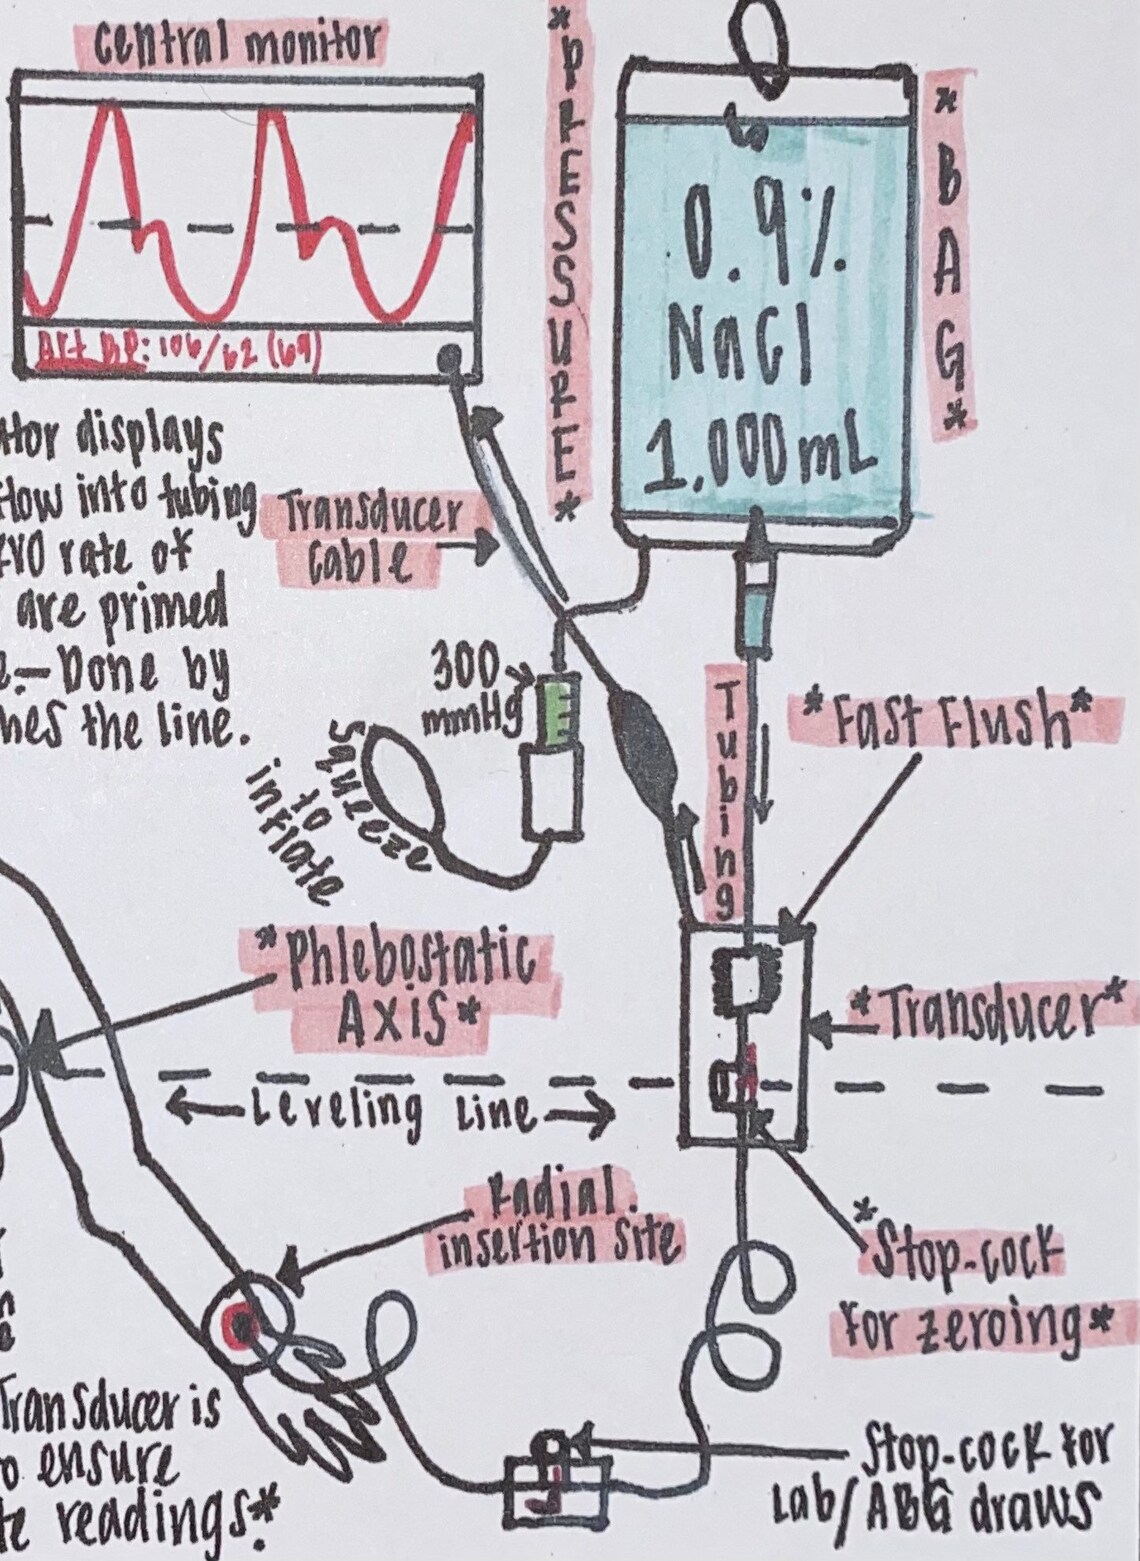 central monitor
Art BP: 106/62 (69)
*PrESSUrE*
0.9%
NaCl
1,000mL
*BAG*
displays
flow into tubing
rate of
are primed
- Done by
the line.
Transducer
Cable
300
mmHg
squeeze
to
inflate
Tubing
*Fast Flush*
*Phlebostatic
Axis*
*Transducer*
Leveling Line
Radial
insertion site
*Stop-cock
for zeroing*
Transducer is
ensure
readings*.
Stop-cock for
Lab/ABG draws